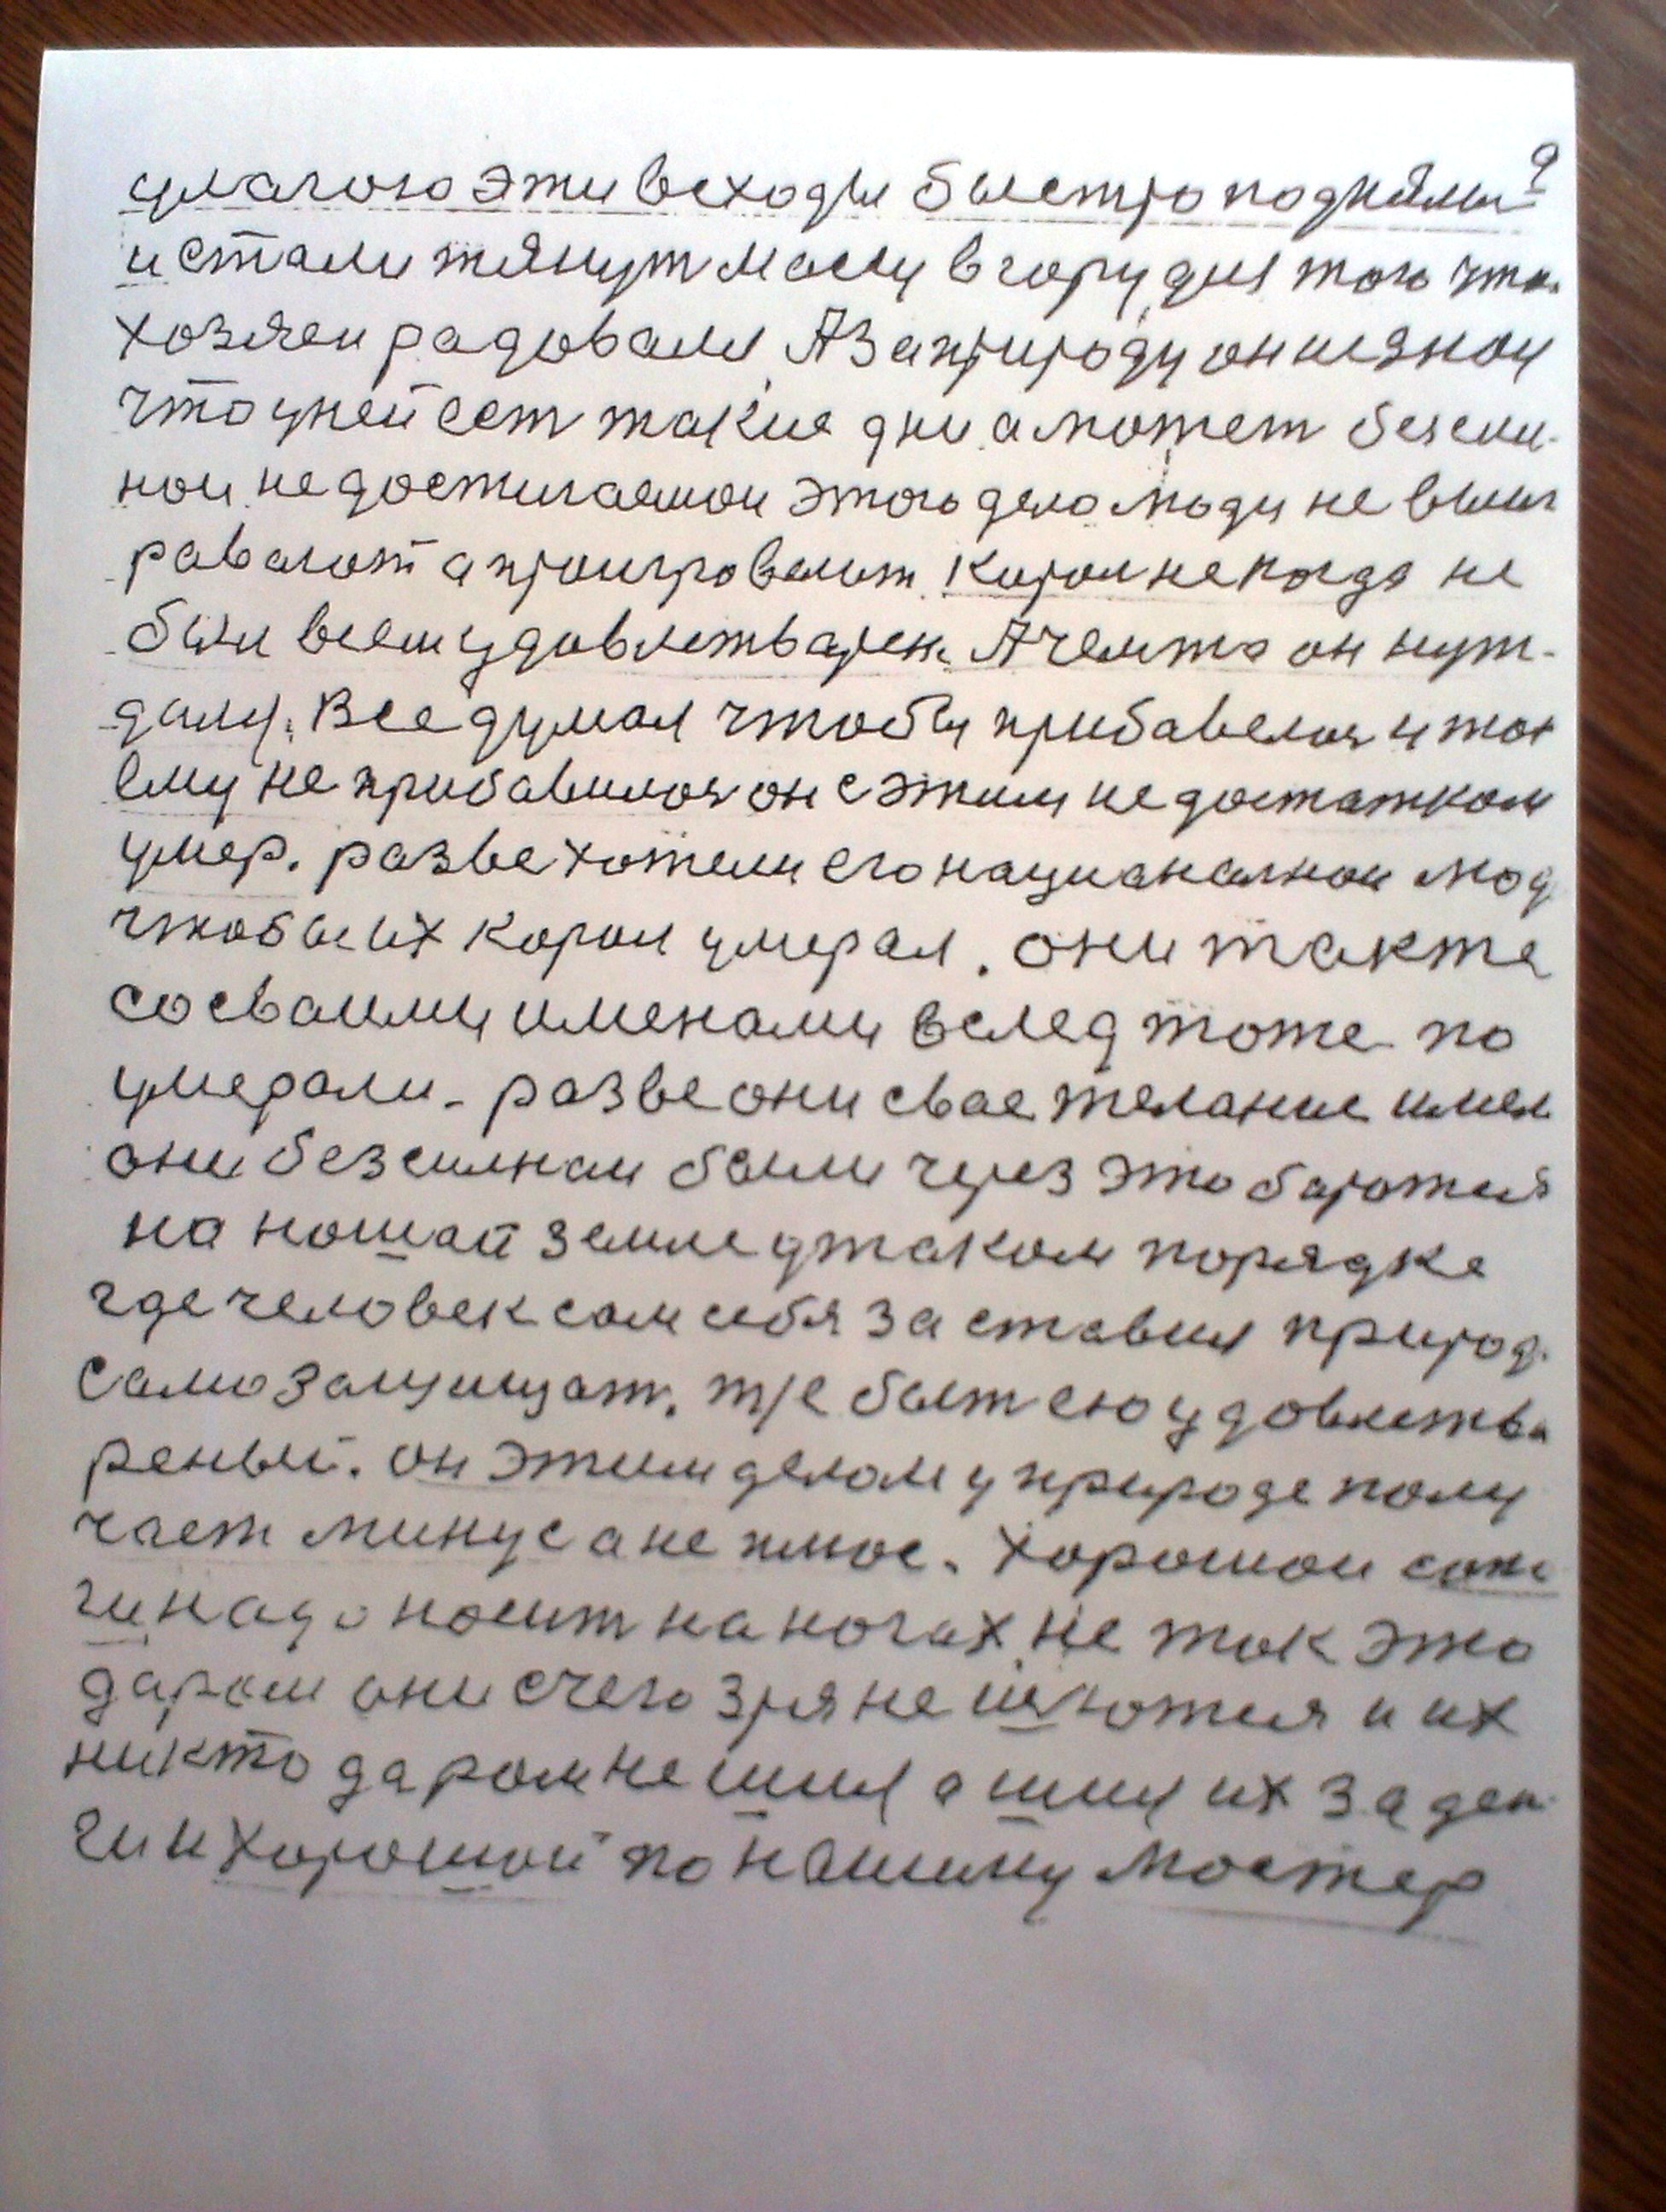 9
умалого эти всходы быстро поднями
и стали тянут масу вгору для того что
хозяеи радовалл А за природу он незнал
что у ней ест такие дни а можем безсил-
нои недостигаемои этого дела люди не выиг
равают а проигровают. Корол некогда не
был всем удовлетварен. А чемто он нуж-
далц. Все думал чтобы прибавелос у том
ему не прибавилос он с этим недостатком
умер. разве хотели его нацианалнои люд
чтобы их корол умерал. они также
со сваими именами вслед тоже по
умерали. разве они свае желание имел
они безсилнаи были через это баротся
на нашай земле у таком порядке
где человек сам себя заставил природ.
само защищат. т/е быт ею удовлетва
реный. он этим делом у природе полу
чает минус а не плюс. Хорошои сапо
ги надо носит на ногах не так это
даром они счего зря не шеются и их
никто даром не шил а шил их за ден
ги и хорошой по нашиму мастер